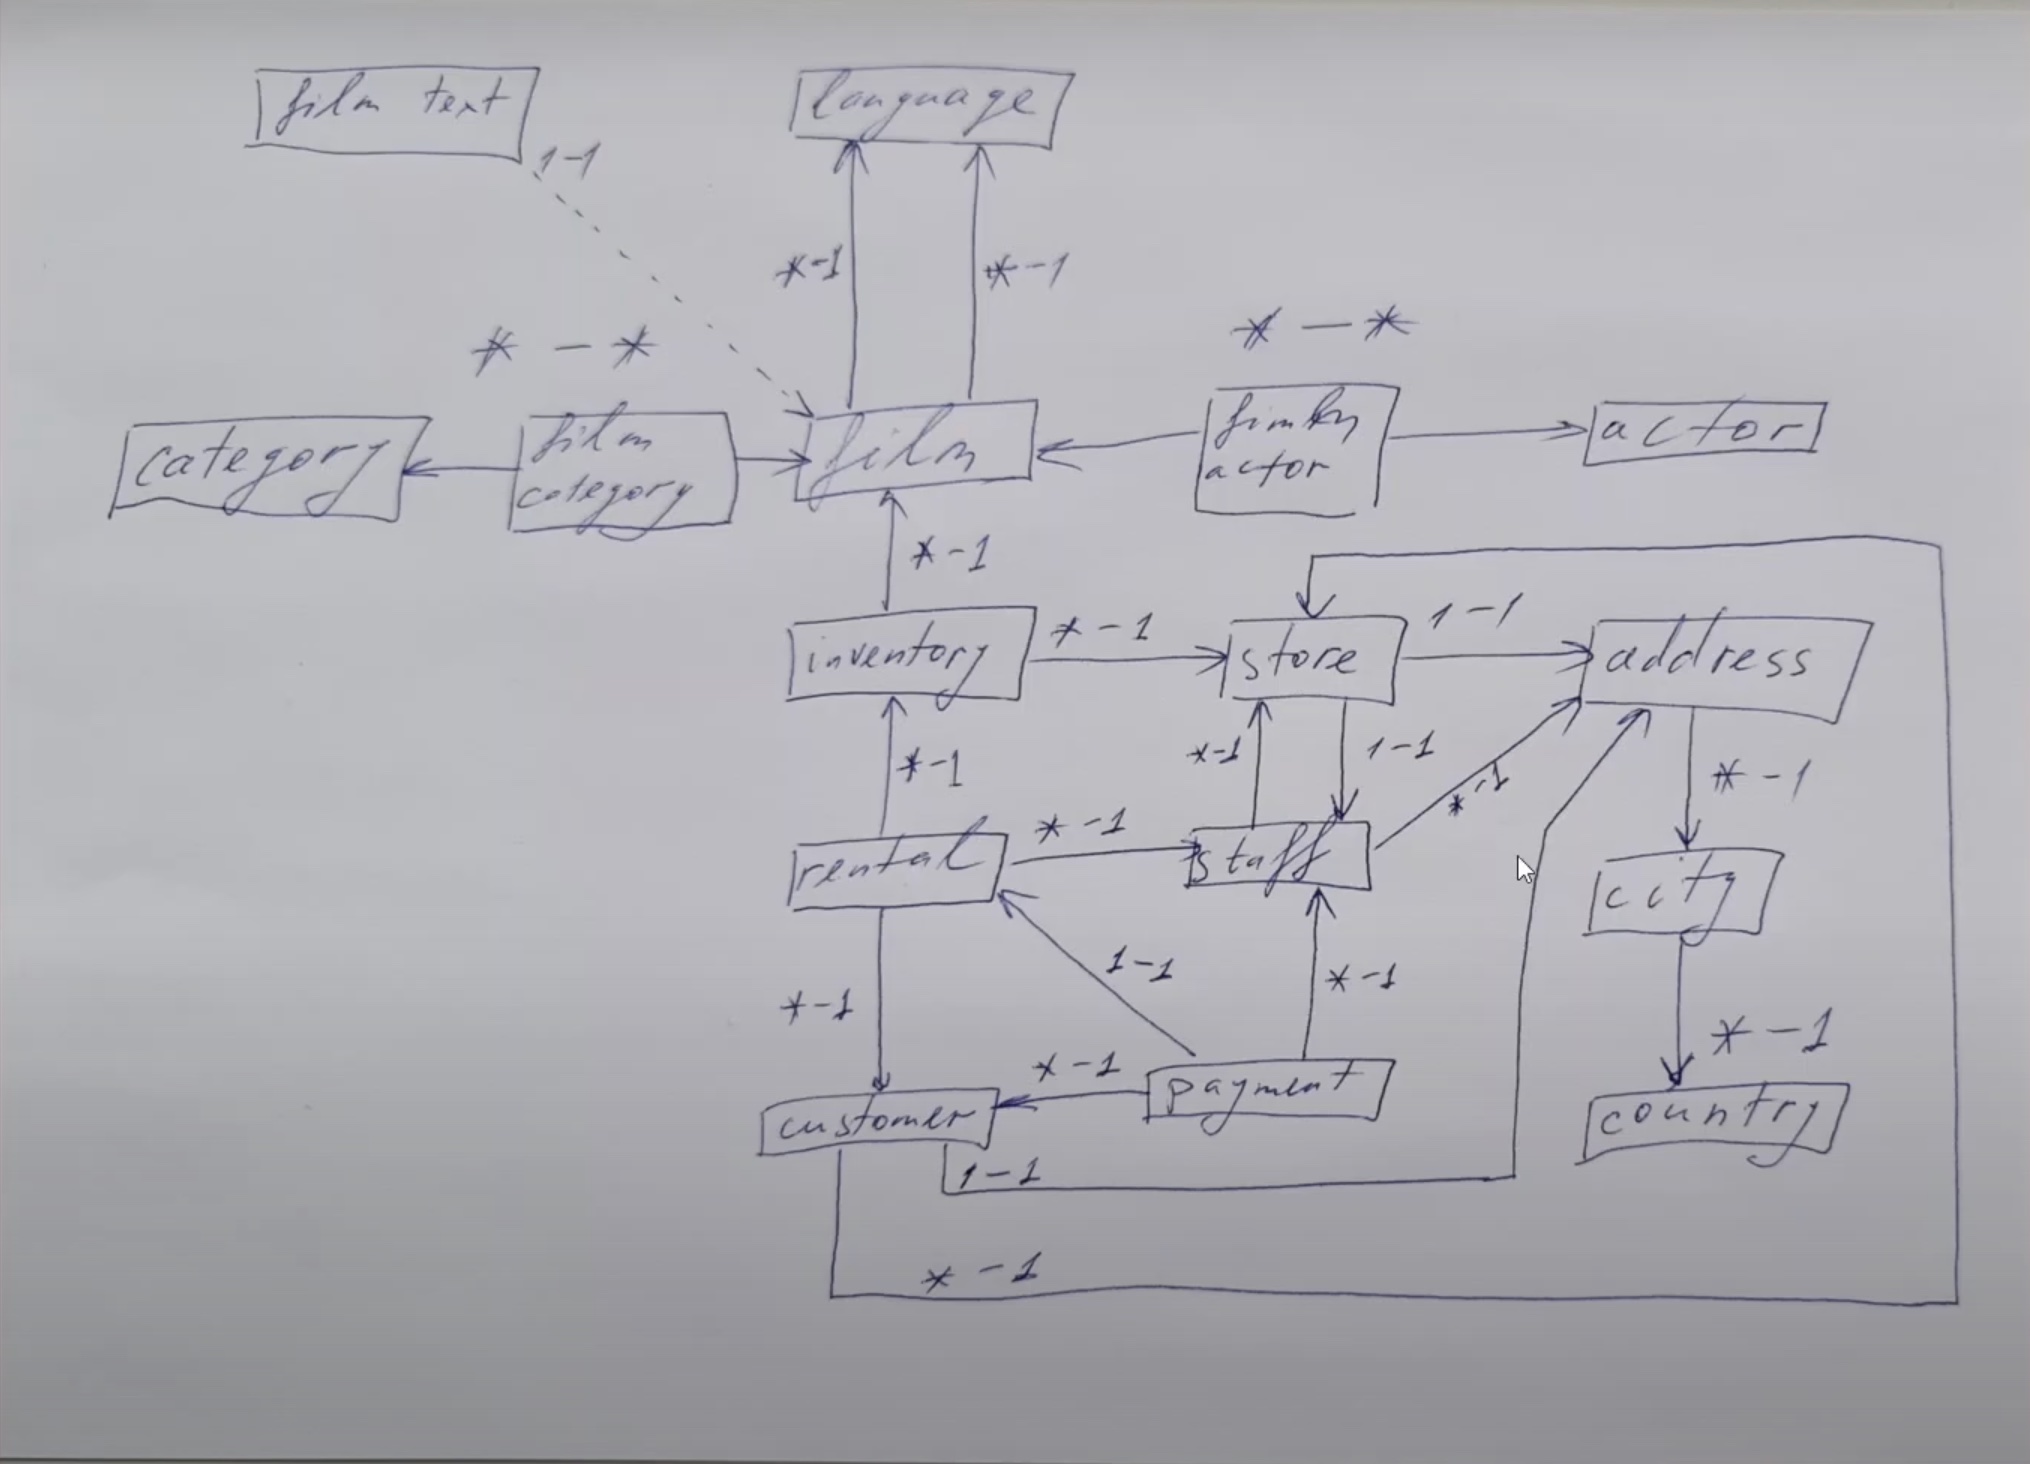 film text
language
1-1
*-1
*-1
* - *
* - *
category
film
category
film
actor
actor
*-1
inventory
*-1
store
1-1
address
*-1
*-1
1-1
*-1
*-1
rental
*-1
staff
city
*-1
1-1
*-1
*-1
customer
*-1
payment
country
1-1
*-1